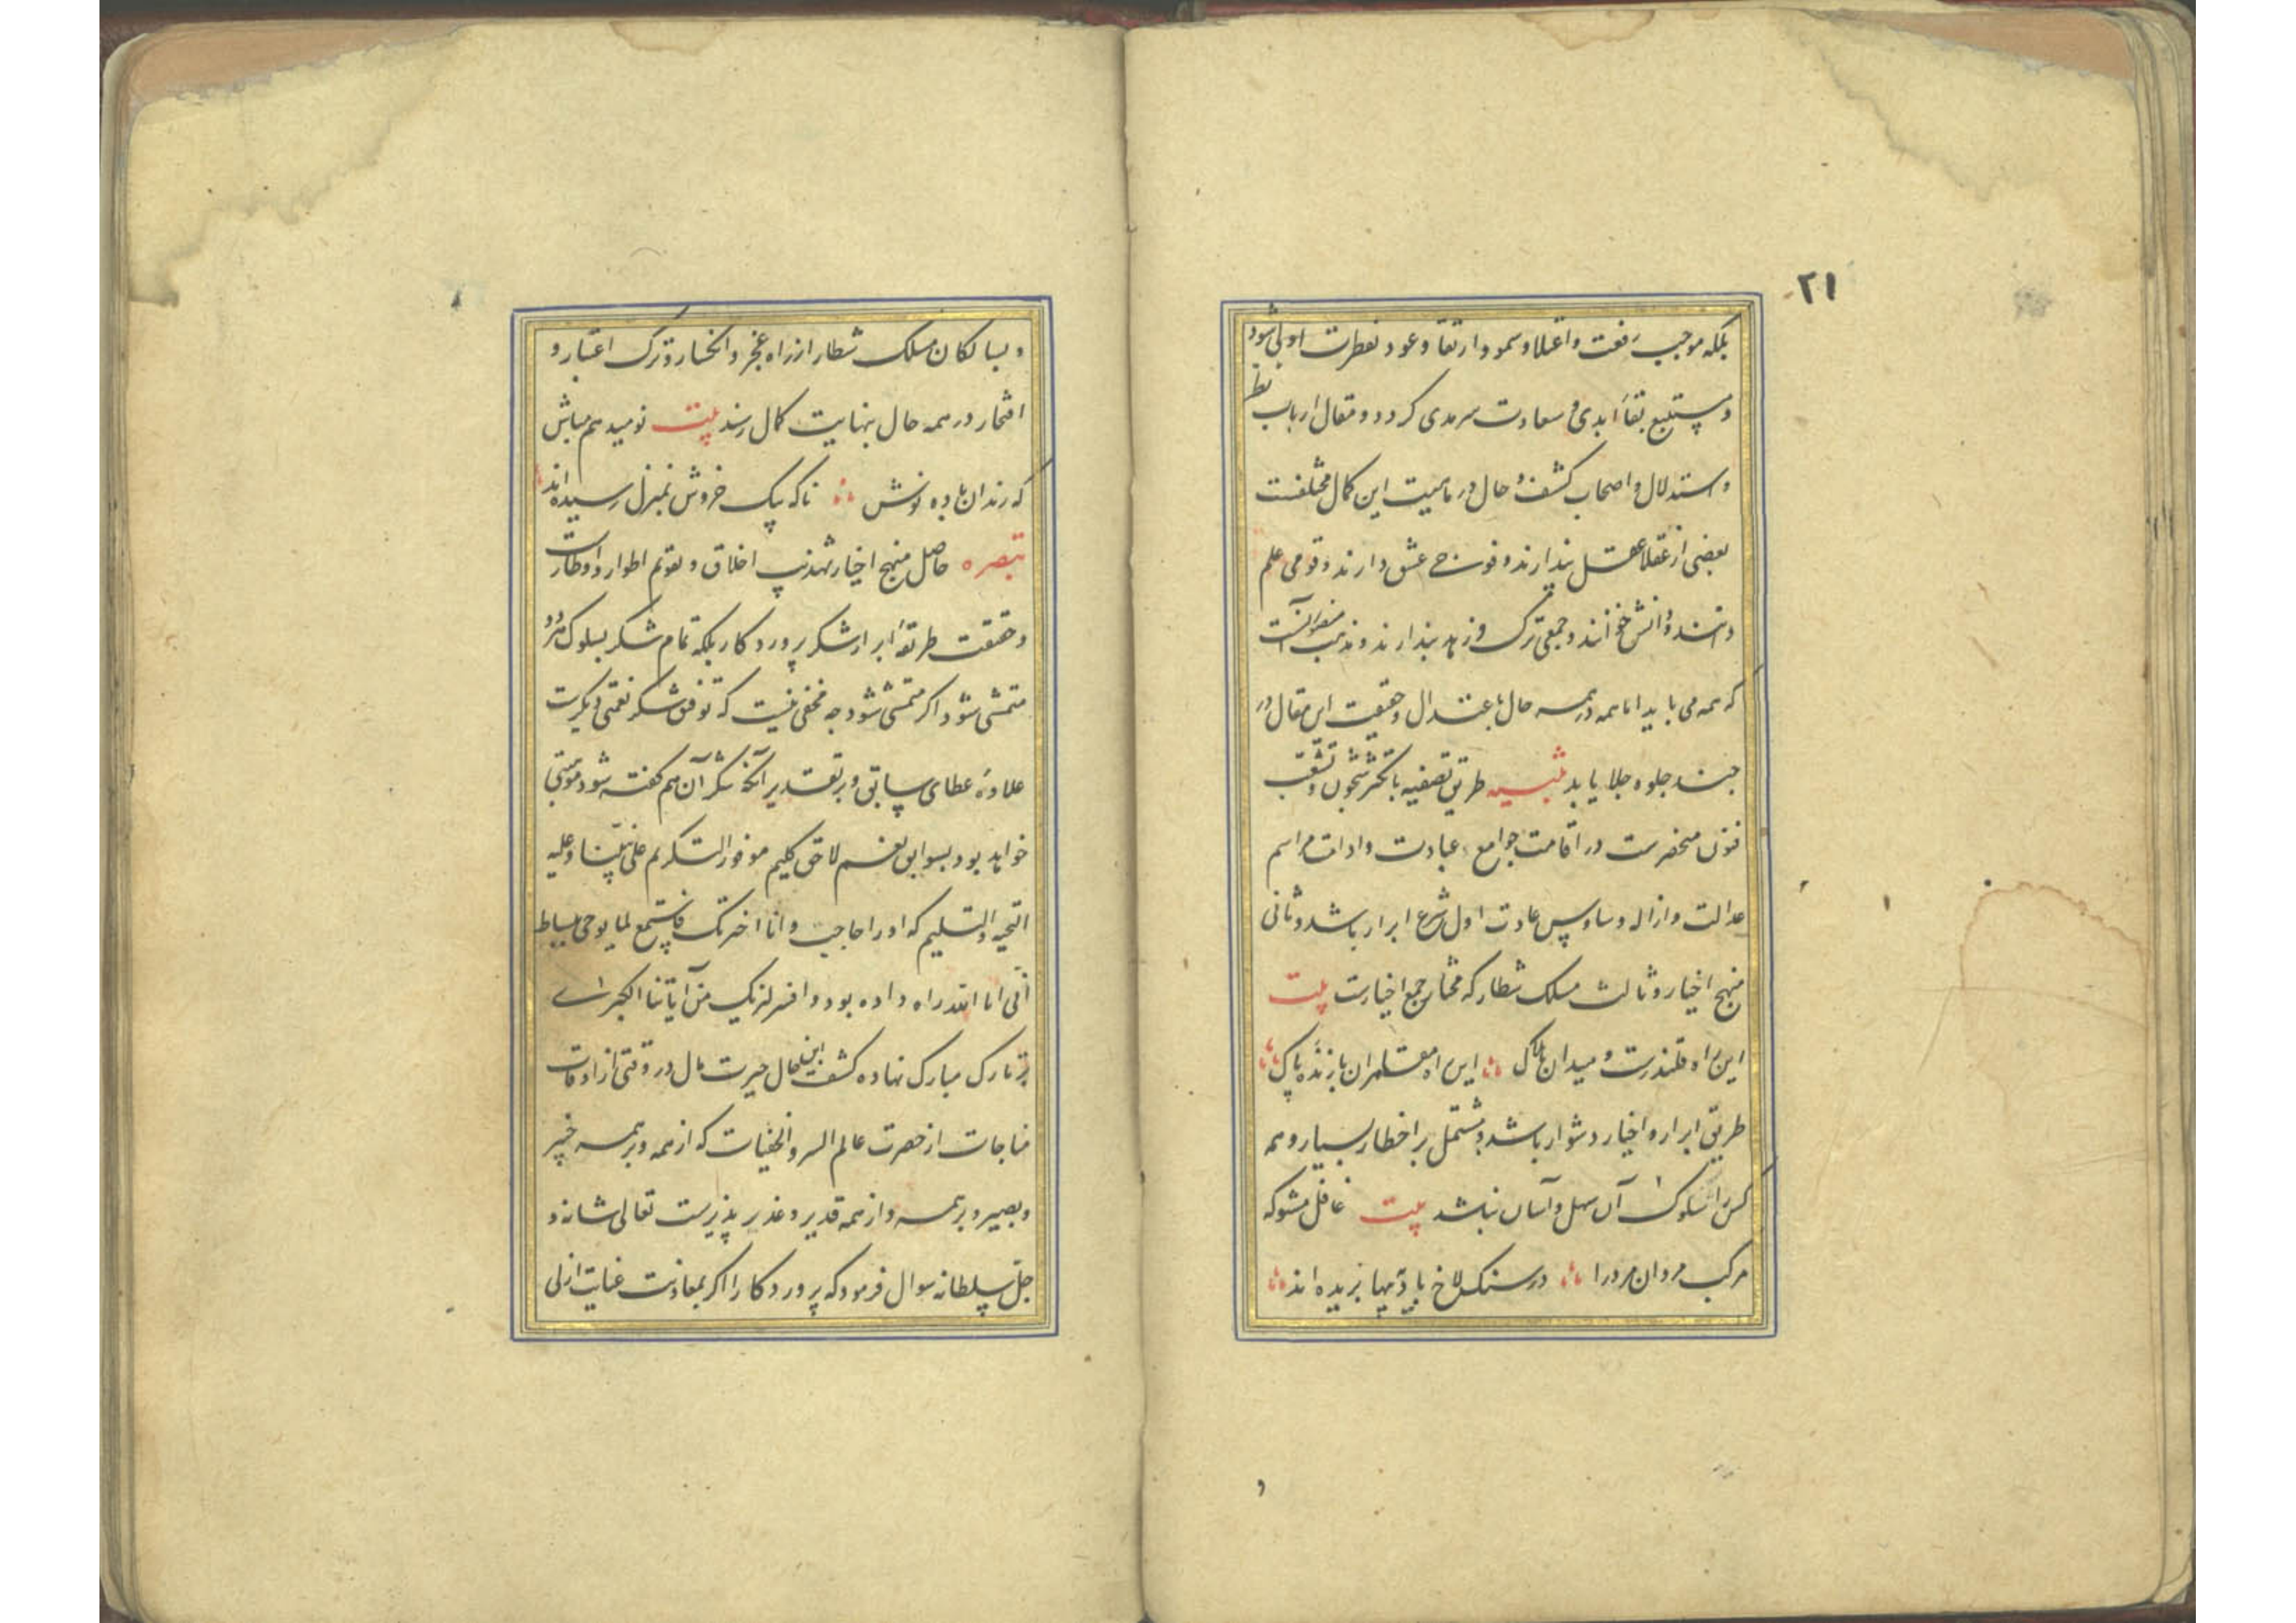 ۲۱
بلکه موجب رفعت و اعتلا و سمو و ارتقا و عود بفطرت اولی شود
و مستتبع بقاء ابدی و سعادت سرمدی کردد و مقال ارباب نظر
و استدلال و اصحاب کشف و حال در ماهیت این کمال مختلفست
بعضی از عقلا عقل پندارند و فوجے عشق دارند و قومی علم
و دانش خوانند و جمعی ترک و زهد پندارند و مذهب منصور آنست
که همه می باید اما همه در همه حال باعتدال و حقیقت این مقال در
جلوه جلا یابد تنبیه طریق تصفیه با تکثر شجون و تشعب
فنون منحصرست در اقامت جوامع عبادت و ادات مراسم
عدالت و ازاله وساوس عادت اول شرع ابرار باشد و ثانی
منهج اخیار و ثالث مسلک شطار که مختار جمع اخیارست بیت
این راه قلندرست و میدان هلاک این راه مقامران بازنده پاک
طریق ابرار و اخیار دشوار باشد و مشتمل بر اخطار بسیار و همه
کس را سلوک آن سهل و آسان نباشد بیت غافل مشو که
مرکب مردان مرد را در سنکلاخ بادیه پیها بریده اند
و
و بسالکان مسلک شطار از راه عجز و انکسار و ترک اعتبار و
افتخار در همه حال بنهایت کمال رسند بیت نومید هم مباش
که رندان باده نوش ناکه بیک خروش بمنزل رسیده اند
تبصره حاصل منهج اخیار تهذیب اخلاق و تقویم اطوار و اوطارست
و حقیقت طریقه ابرار شکر پروردکار بلکه تمام شکر بسلوک
متمشی شود اکر متمشی شود چه مخفی نیست که توفیق شکر نعمتی دیکرست
علاوه عطای سابق و بر تقدیر آنکه شکر آن هم کفته شود
خواهد بود بسوابق نعم لاحق کلیم موفور التکریم علی نبینا و علیه
التحیه و التسلیم که او را حاجب و انا اخترتک فاستمع لما یوحی ببساط
اننی انا الله راه داده بود و افسر لنریک من آیاتنا الکبرے
بر تارک مبارک نهاده کشف این حال حیرت مآل در وقتی از اوقات
مناجات از حضرت عالم السر و الخفیات که از همه و بر همه خبیر
و بصیر و بر همه و از همه قدیر و عذر پذیرست تعالی شانه و
جل سلطانه سوال فرمود که پروردکارا اکر بمعاونت عنایت ازلی